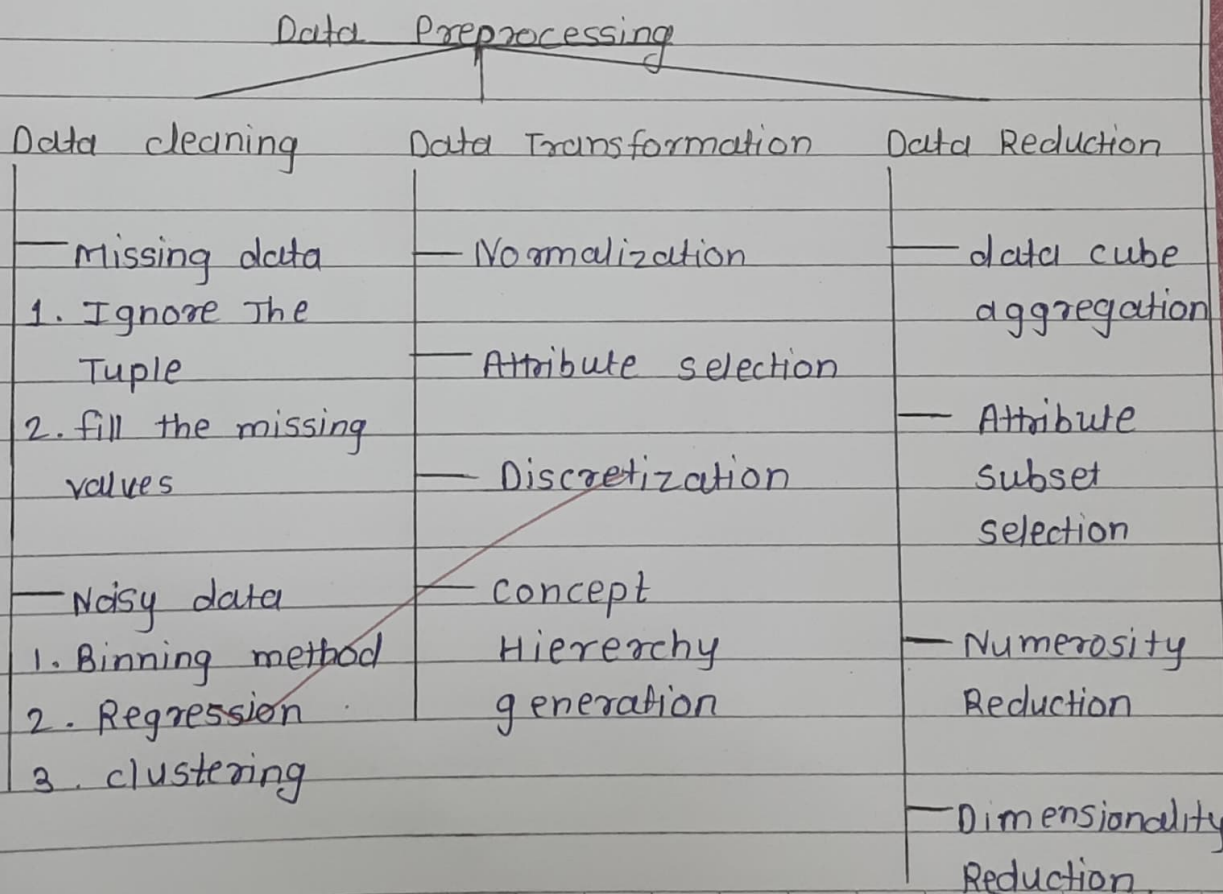 Data Preprocessing
Data cleaning
Missing data
1. Ignore The
Tuple
2. fill the missing
values
Noisy data
1. Binning method
2. Regression
3. clustering
Data Transformation
Normalization
Attribute selection
Discretization
concept
Hiererchy
generation
Data Reduction
data cube
aggregation
Attribute
subset
selection
Numerosity
Reduction
Dimensionality
Reduction